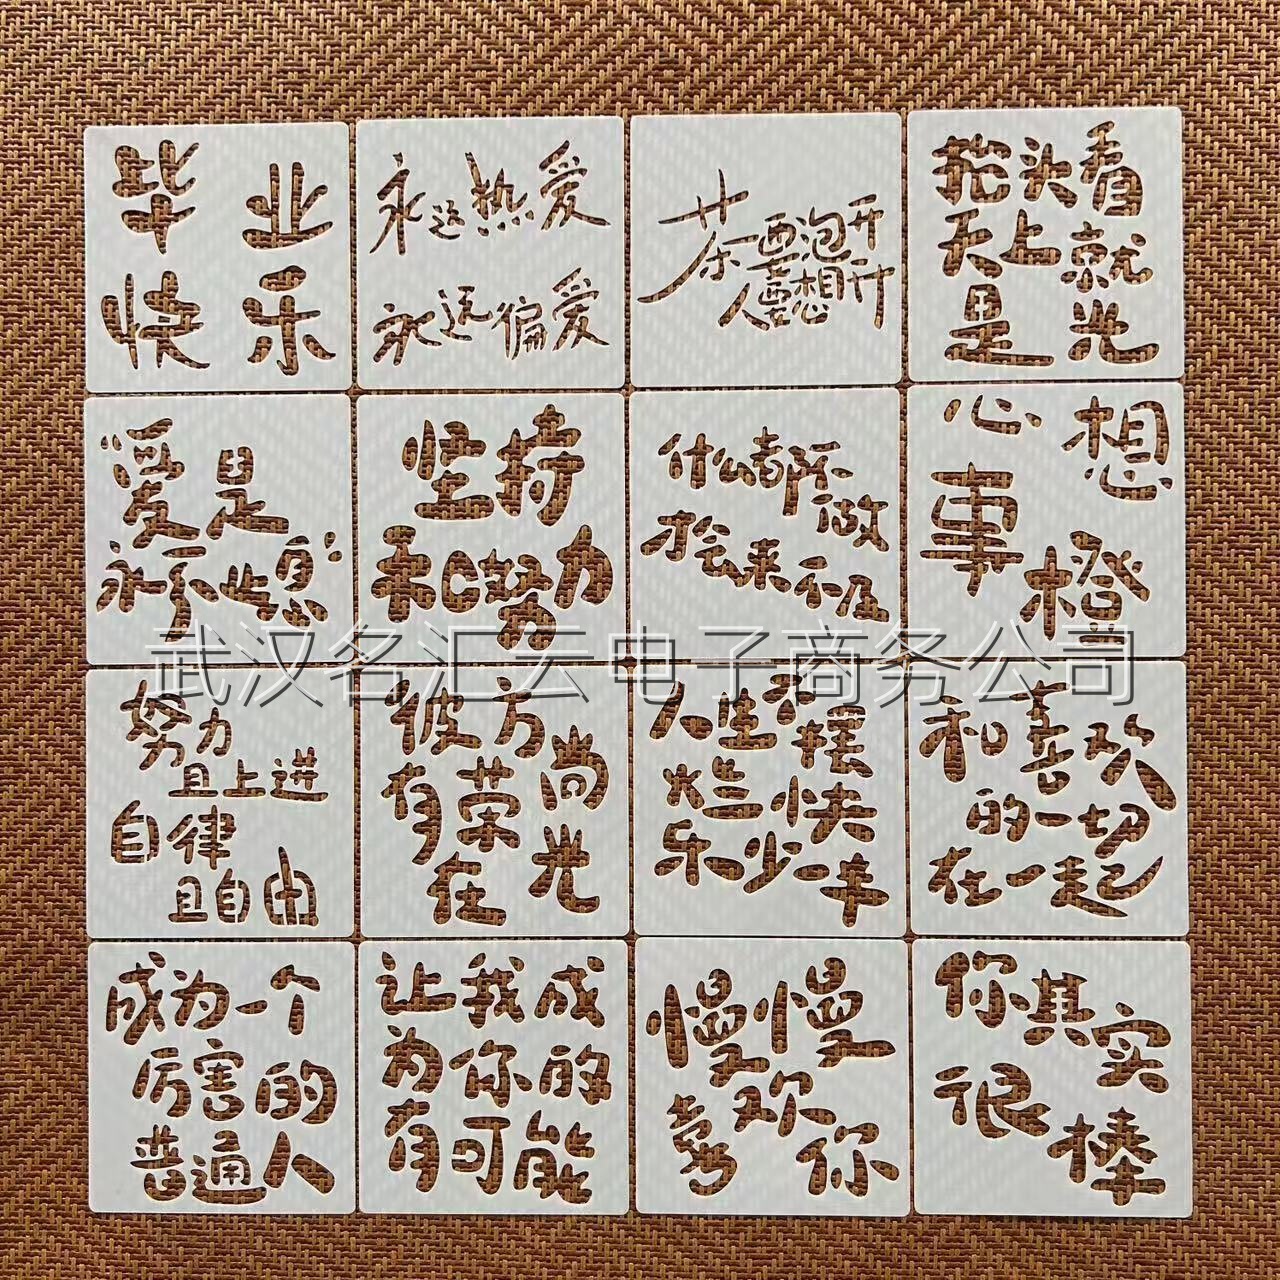 毕业
快乐
永远热爱
永远偏爱
茶要泡开
人要想开
抬头看
天上就
是光
爱是
永不止息
坚持
和努力
什么都不做
才会来不及
心想
事橙
努力
且上进
自律
且自由
彼方尚
有荣光
在
人生不摆
烂快
乐少一半
和喜欢
的一切
在一起
成为一个
厉害的
普通人
让我成
为你的
有可能
慢慢
喜欢你
你其实
很棒
武汉名汇云电子商务公司